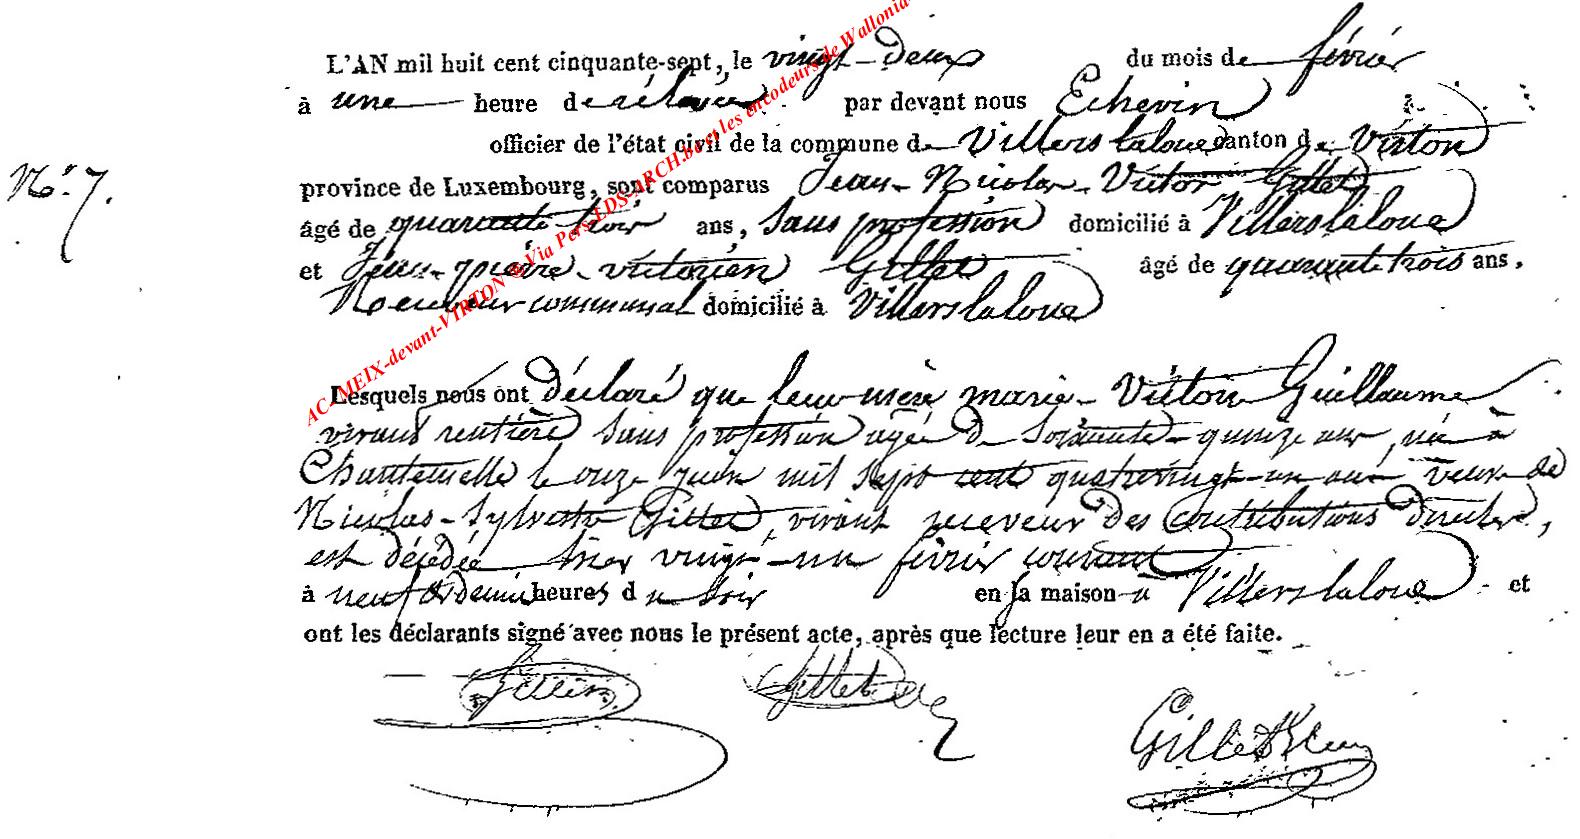 L'AN mil huit cent cinquante-sept, le vingt-deux du mois de février
à une heure de rélevée par devant nous Echevin
officier de l'état civil de la commune de Villerslaloue canton de Virton
N.° 7.
province de Luxembourg, sont comparus Jean-Nicolas-Victor Gillet
âgé de quarante trois ans, sans profession domicilié à Villerslaloue
et Jean-pierre-victorien Gillet âgé de quarante trois ans,
Receveur communal domicilié à Villerslaloue
Lesquels nous ont déclaré que leur mère marie-Victoire Guillaume
vivant rentière sans profession agée de soixante-quinze ans, née à
Chantemelle le onze juin mil sept cent quatrevingt-un veuve de
Nicolas-Sylvestre Gillet, vivant receveur des contributions directes,
est décédée hier vingt-un février courant
à neuf et demi heures du soir en sa maison à Villerslaloue et
ont les déclarants signé avec nous le présent acte, après que lecture leur en a été faite.
Gillet
Gillet
AC-MEIX-devant-VIRTON @ Via Pers.LDS-ARCH.be et les encodeurs de Wallonia